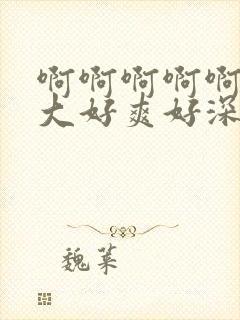 啊啊啊啊啊
大好爽好深
魏某